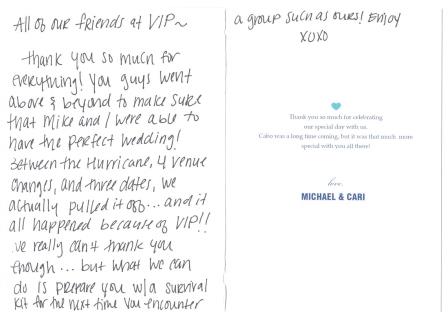 All of our friends at VIP~
Thank you so much for
everything! You guys went
above & beyond to make sure
that Mike and I were able to
have the perfect wedding!
Between the Hurricane, 4 venue
changes, and three dates, we
actually pulled it off... and it
all happened because of VIP!!
we really can't thank you
enough... but what we can
do is prepare you w/a survival
kit for the next time you encounter
a group such as ours! Enjoy
XOXO
Thank you so much for celebrating
our special day with us.
Cabo was a long time coming, but it was that much more
special with you all there!
love,
MICHAEL & CARI